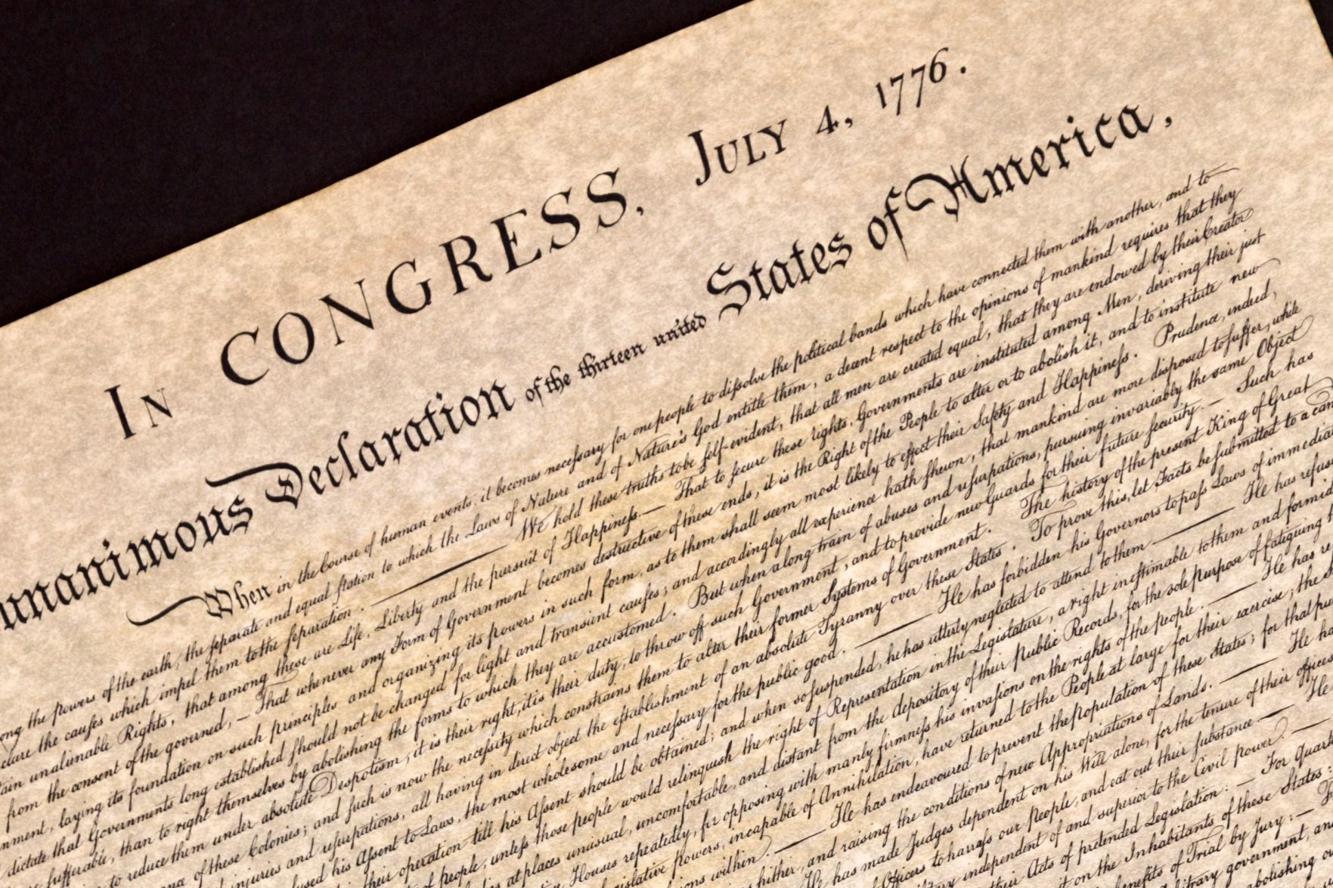 In CONGRESS, July 4, 1776.
unanimous Declaration of the thirteen united States of America,
When in the Course of human events, it becomes necessary for one people to dissolve the political bands which have connected them with another, and to
ong the powers of the earth, the separate and equal station to which the Laws of Nature and of Nature's God entitle them, a decent respect to the opinions of mankind requires that they
clare the causes which impel them to the separation. — We hold these truths to be self-evident, that all men are created equal, that they are endowed by their Creator
tain unalienable Rights, that among these are Life, Liberty and the pursuit of Happiness.— That to secure these rights, Governments are instituted among Men, deriving their just
from the consent of the governed, — That whenever any Form of Government becomes destructive of these ends, it is the Right of the People to alter or to abolish it, and to institute new
nment, laying its foundation on such principles and organizing its powers in such form, as to them shall seem most likely to effect their Safety and Happiness. Prudence, indeed,
dictate that Governments long established should not be changed for light and transient causes; and accordingly all experience hath shewn, that mankind are more disposed to suffer, while
sufferable, than to right themselves by abolishing the forms to which they are accustomed. But when a long train of abuses and usurpations, pursuing invariably the same Object
to reduce them under absolute Despotism, it is their right, it is their duty, to throw off such Government, and to provide new Guards for their future security.— Such has
ance of these Colonies; and such is now the necessity which constrains them to alter their former Systems of Government. The history of the present King of Great
injuries and usurpations, all having in direct object the establishment of an absolute Tyranny over these States. To prove this, let Facts be submitted to a can
used his Assent to Laws, the most wholesome and necessary for the public good. — He has forbidden his Governors to pass Laws of immedia
their operation till his Assent should be obtained; and when so suspended, he has utterly neglected to attend to them — He has refus
of people, unless those people would relinquish the right of Representation in the Legislature, a right inestimable to them and formid
at places unusual, uncomfortable, and distant from the depository of their public Records, for the sole purpose of fatiguing
Houses repeatedly, for opposing with manly firmness his invasions on the rights of the people. — He has re
islative powers, incapable of Annihilation, have returned to the People at large for their exercise; the S
ions within. — He has endeavoured to prevent the population of these States; for that pur
hither, and raising the conditions of new Appropriations of Lands. — He ha
He has made Judges dependent on his Will alone, for the tenure of their offices
Officers to harass our People, and eat out their substance. — He
itary independent of and superior to the Civil power. —
their Acts of pretended Legislation: — For quart
on the Inhabitants of these States:
benefits of Trial by Jury: — F
itrary government, an
abolishing ou